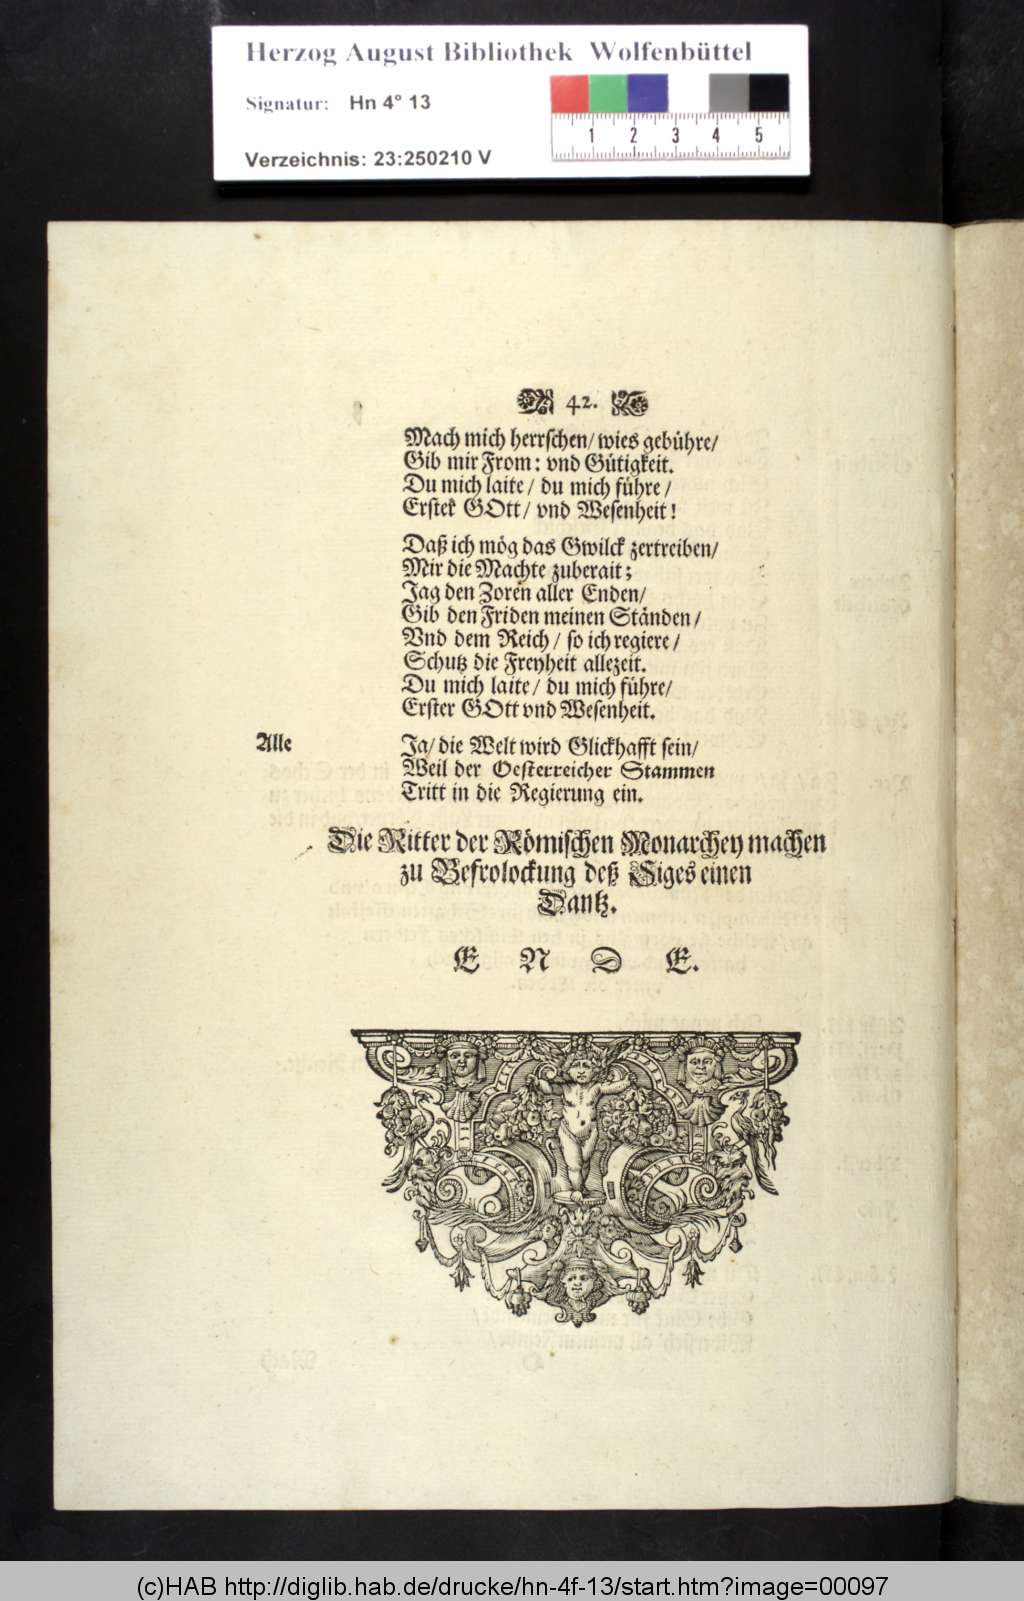 Herzog August Bibliothek Wolfenbüttel
Signatur: Hn 4° 13
Verzeichnis: 23:250210 V
1 2 3 4 5
42.
Mach mich herrschen/ wies gebühre/
Gib mir From: vnd Gütigkeit.
Du mich laite/ du mich führe/
Erster GOtt/ vnd Wesenheit!
Daß ich mög das Gwilck zertreiben/
Mir die Machte zuberait;
Jag den Zoren aller Enden/
Gib den Friden meinen Ständen/
Vnd dem Reich/ so ich regiere/
Schutz die Freyheit allezeit.
Du mich laite/ du mich führe/
Erster GOtt vnd Wesenheit.
Alle Ja/ die Welt wird Glickhafft sein/
Weil der Oesterreicher Stammen
Tritt in die Regierung ein.
Die Ritter der Römischen Monarchey machen
zu Befrolockung deß Siges einen
Dantz.
E N D E.
(c)HAB http://diglib.hab.de/drucke/hn-4f-13/start.htm?image=00097